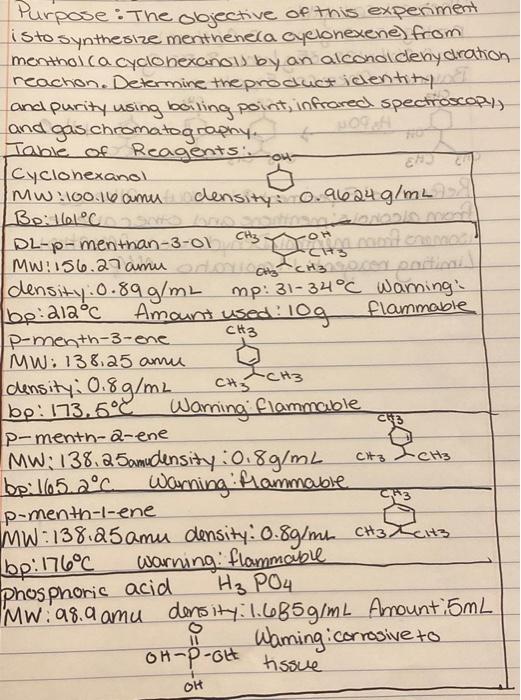 Purpose: The objective of this experiment
is to synthesize menthene (a cyclohexene) from
menthol (a cyclohexanol) by an alcohol dehydration
reaction. Determine the product identity
and purity using boiling point, infrared spectroscopy,
and gas chromatography.
Table of Reagents:
OH
Cyclohexanol
MW: 100.16 amu density: 0.9624 g/mL
Bp: 161°C
DL-p-menthan-3-ol CH3 OH
CH3
MW: 156.27 amu CH3 CH3
density: 0.89 g/mL mp: 31-34°C Warning:
bp: 212°C Amount used: 10g flammable
p-menth-3-ene CH3
MW: 138.25 amu
density: 0.8 g/mL CH3 CH3
bp: 173.5°C Warning: flammable
p-menth-2-ene CH3
MW: 138.25amu density: 0.8g/mL CH3 CH3
bp: 165.2°C Warning: flammable
p-menth-1-ene CH3
MW: 138.25 amu density: 0.8g/mL CH3 CH3
bp: 176°C warning: flammable
phosphoric acid H3 PO4
MW: 98.9 amu density: 1.685g/mL Amount: 5mL
O Warning: corrosive to
OH-P-OH tissue
OH